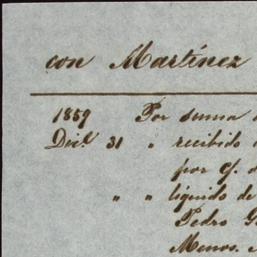 con Martínez
1859 Por suma
Dic.e 31 " recibido
por c/. d
" " líquido de
Pedro G
Menos.